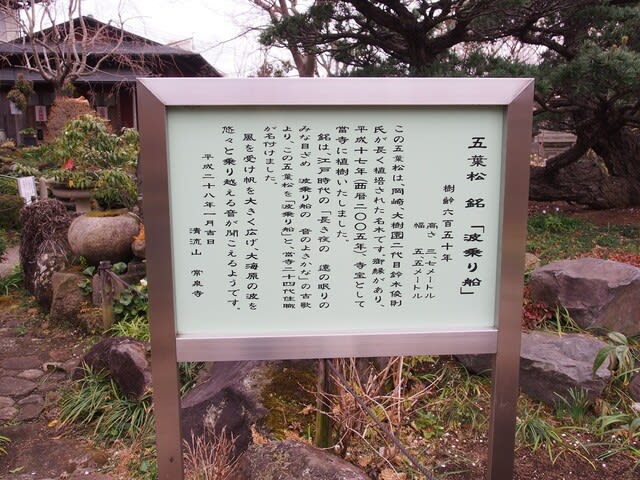 五葉松 銘「波乗り船」
樹齢六百五十年
高さ 三.七メートル
幅 五.五メートル
この五葉松は、岡崎、大樹園二代目鈴木俊則
氏が長く植培された名木です。御縁があり、
平成十七年(西暦二〇〇五年)、寺宝として
當寺に植樹いたしました。
銘は、江戸時代の「長き夜の 遠の眠りの
みな目ざめ 波乗り船の 音のよきかな」の古歌
より、この五葉松を「波乗り船」と、當寺二十四代住職
が名付けました。
風を受け帆を大きく広げ、大海原の波を
悠々と乗り越える音が聞こえるようです。
平成二十八年一月吉日
清流山 常泉寺